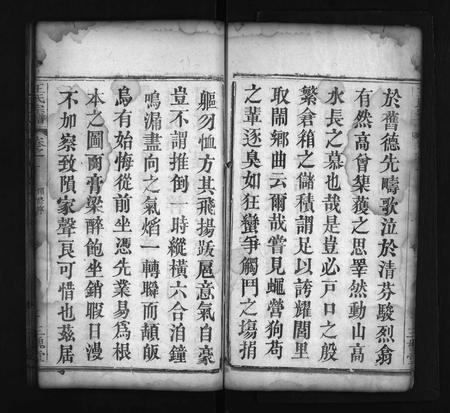 於舊德先疇歌泣於清芬駿烈翕
有然高曾榘矱之思睪然動山高
水長之慕也哉是豈必戸口之殷
繁倉箱之儲積謂足以誇耀閭里
取鬧鄉曲云爾哉嘗見蠅營狗苟
之輩逐臭如狂蠻爭觸鬥之塲捐
軀勿恤方其飛揚跋扈意氣自豪
豈不謂推倒一時縱橫六合洎鐘
鳴漏盡向之氣焰一轉瞬而頽飯
烏有始悔從前坐憑先業曷為根
本之圖而膏粱醉飽坐銷暇日漫
不加察致隕家聲良可惜也茲居
王氏
三槐堂